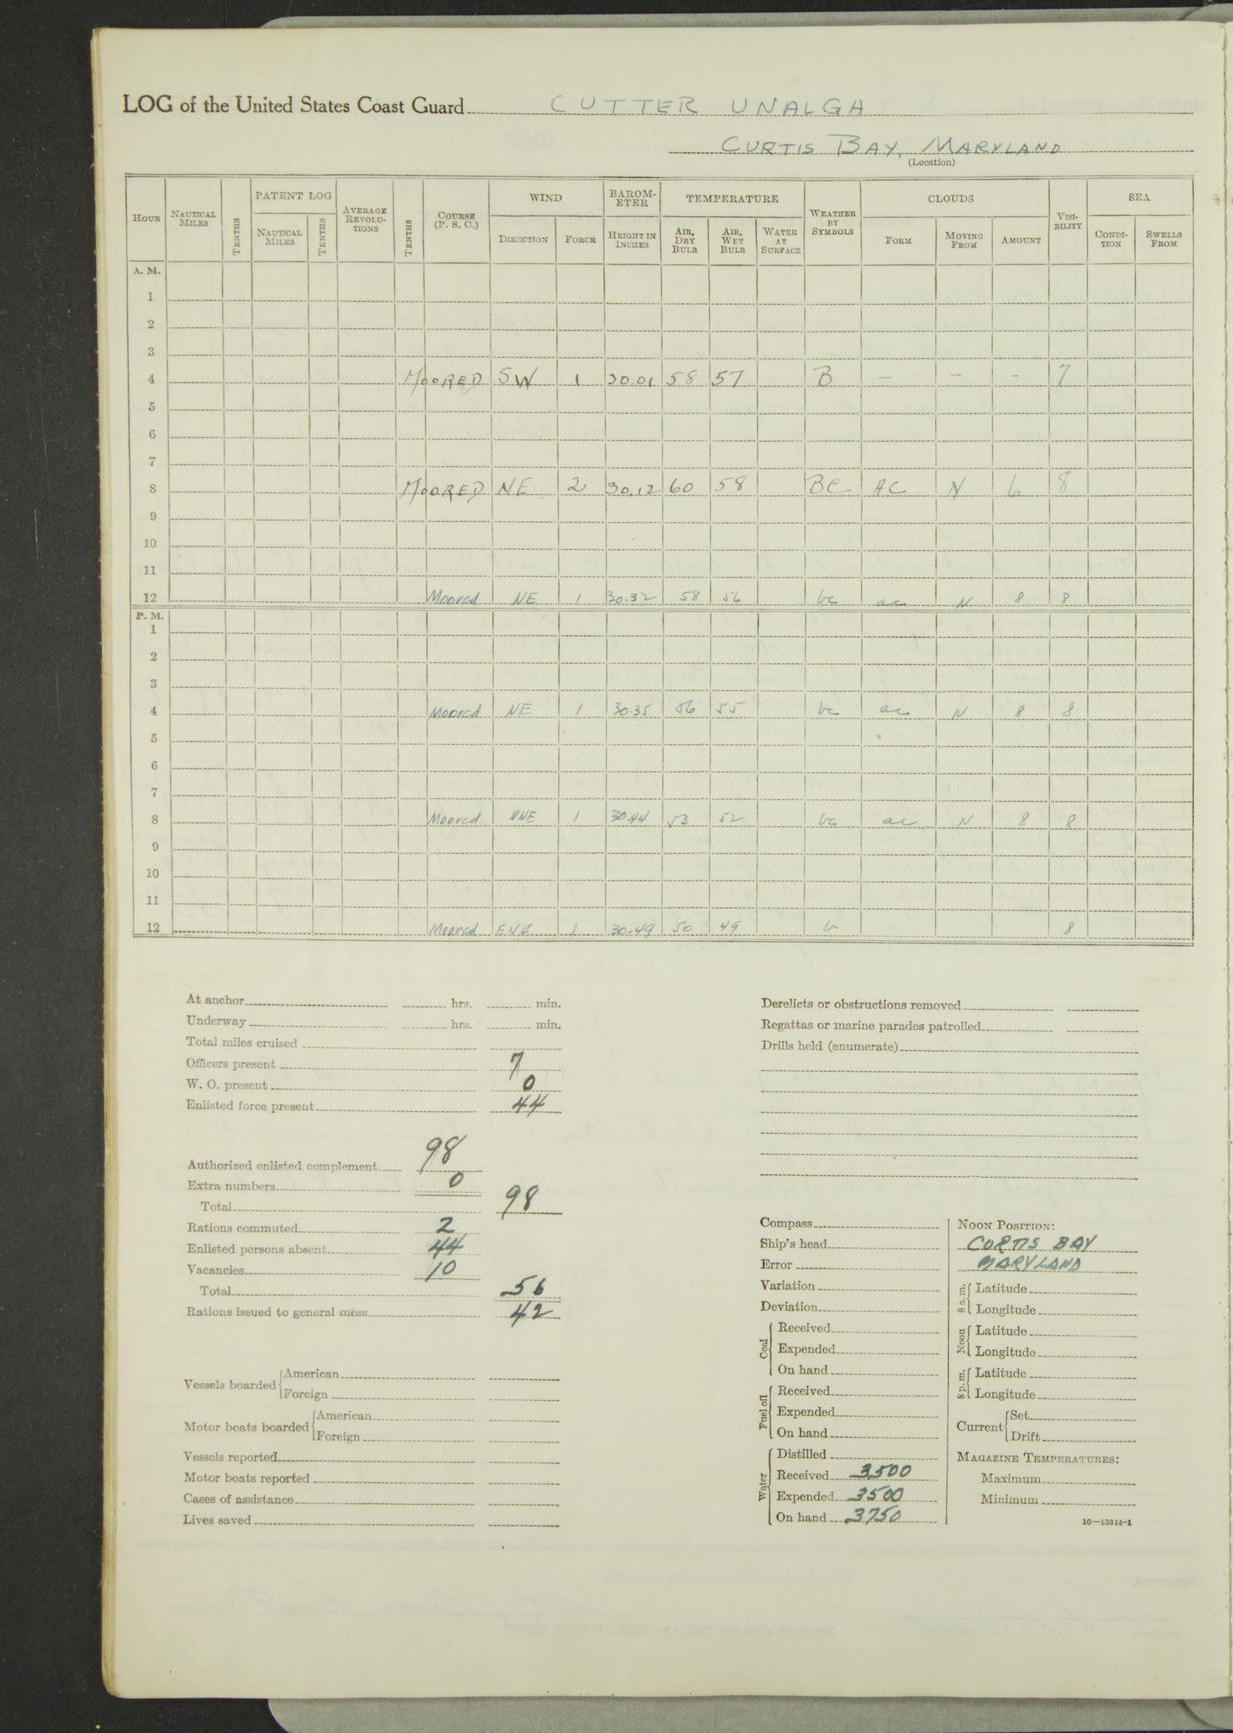 LOG of the United States Coast Guard CUTTER UNALGA
CURTIS BAY, MARYLAND
(Location)
HOUR NAUTICAL MILES TENTHS PATENT LOG NAUTICAL MILES TENTHS AVERAGE REVOLUTIONS TENTHS COURSE (P. S. C.) WIND DIRECTION FORCE BAROMETER HEIGHT IN INCHES TEMPERATURE AIR, DRY BULB AIR, WET BULB WATER AT SURFACE WEATHER BY SYMBOLS CLOUDS FORM MOVING FROM AMOUNT VISIBILITY SEA CONDITION SWELLS FROM
A. M.
1
2
3
4 MOORED SW 1 30.01 58 57 B – – – 7
5
6
7
8 MOORED NE 2 30.12 60 58 BC AC N 6 8
9
10
11
12 Moored NE 1 30.32 58 56 bc ac N 8 8
P. M.
1
2
3
4 Moored NE 1 30.35 56 55 bc ac N 8 8
5
6
7
8 Moored NNE 1 30.44 53 52 bc ac N 8 8
9
10
11
12 Moored ENE 1 30.49 50 49 b 8
At anchor hrs. min.
Underway hrs. min.
Total miles cruised
Officers present 7
W. O. present 0
Enlisted force present 44
Authorized enlisted complement 98
Extra numbers 0
Total 98
Rations commuted 2
Enlisted persons absent 44
Vacancies 10
Total 56
Rations issued to general mess 42
Vessels boarded American
Foreign
Motor boats boarded American
Foreign
Vessels reported
Motor boats reported
Cases of assistance
Lives saved
Derelicts or obstructions removed
Regattas or marine parades patrolled
Drills held (enumerate)
Compass
Ship's head
Error
Variation
Deviation
Coal Received
Expended
On hand
Fuel oil Received
Expended
On hand
Water Distilled
Received 3500
Expended 3500
On hand 3750
NOON POSITION:
CURTIS BAY
MARYLAND
8 a.m. Latitude
Longitude
Noon Latitude
Longitude
8 p.m. Latitude
Longitude
Current Set
Drift
MAGAZINE TEMPERATURES:
Maximum
Minimum
16—13314-1